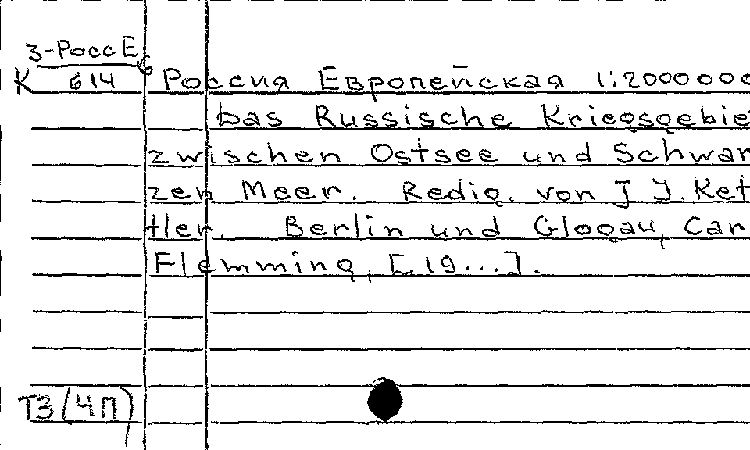 3-Росс Е6
К 614
Россия Европейская 1:2000000
bas Russische Kriegsgebie
zwischen Ostsee und Schwar
zen Meer. Redig. von J J. Ket
tler. Berlin und Glogau, Car
Flemming, [19...].
Т3(4П)